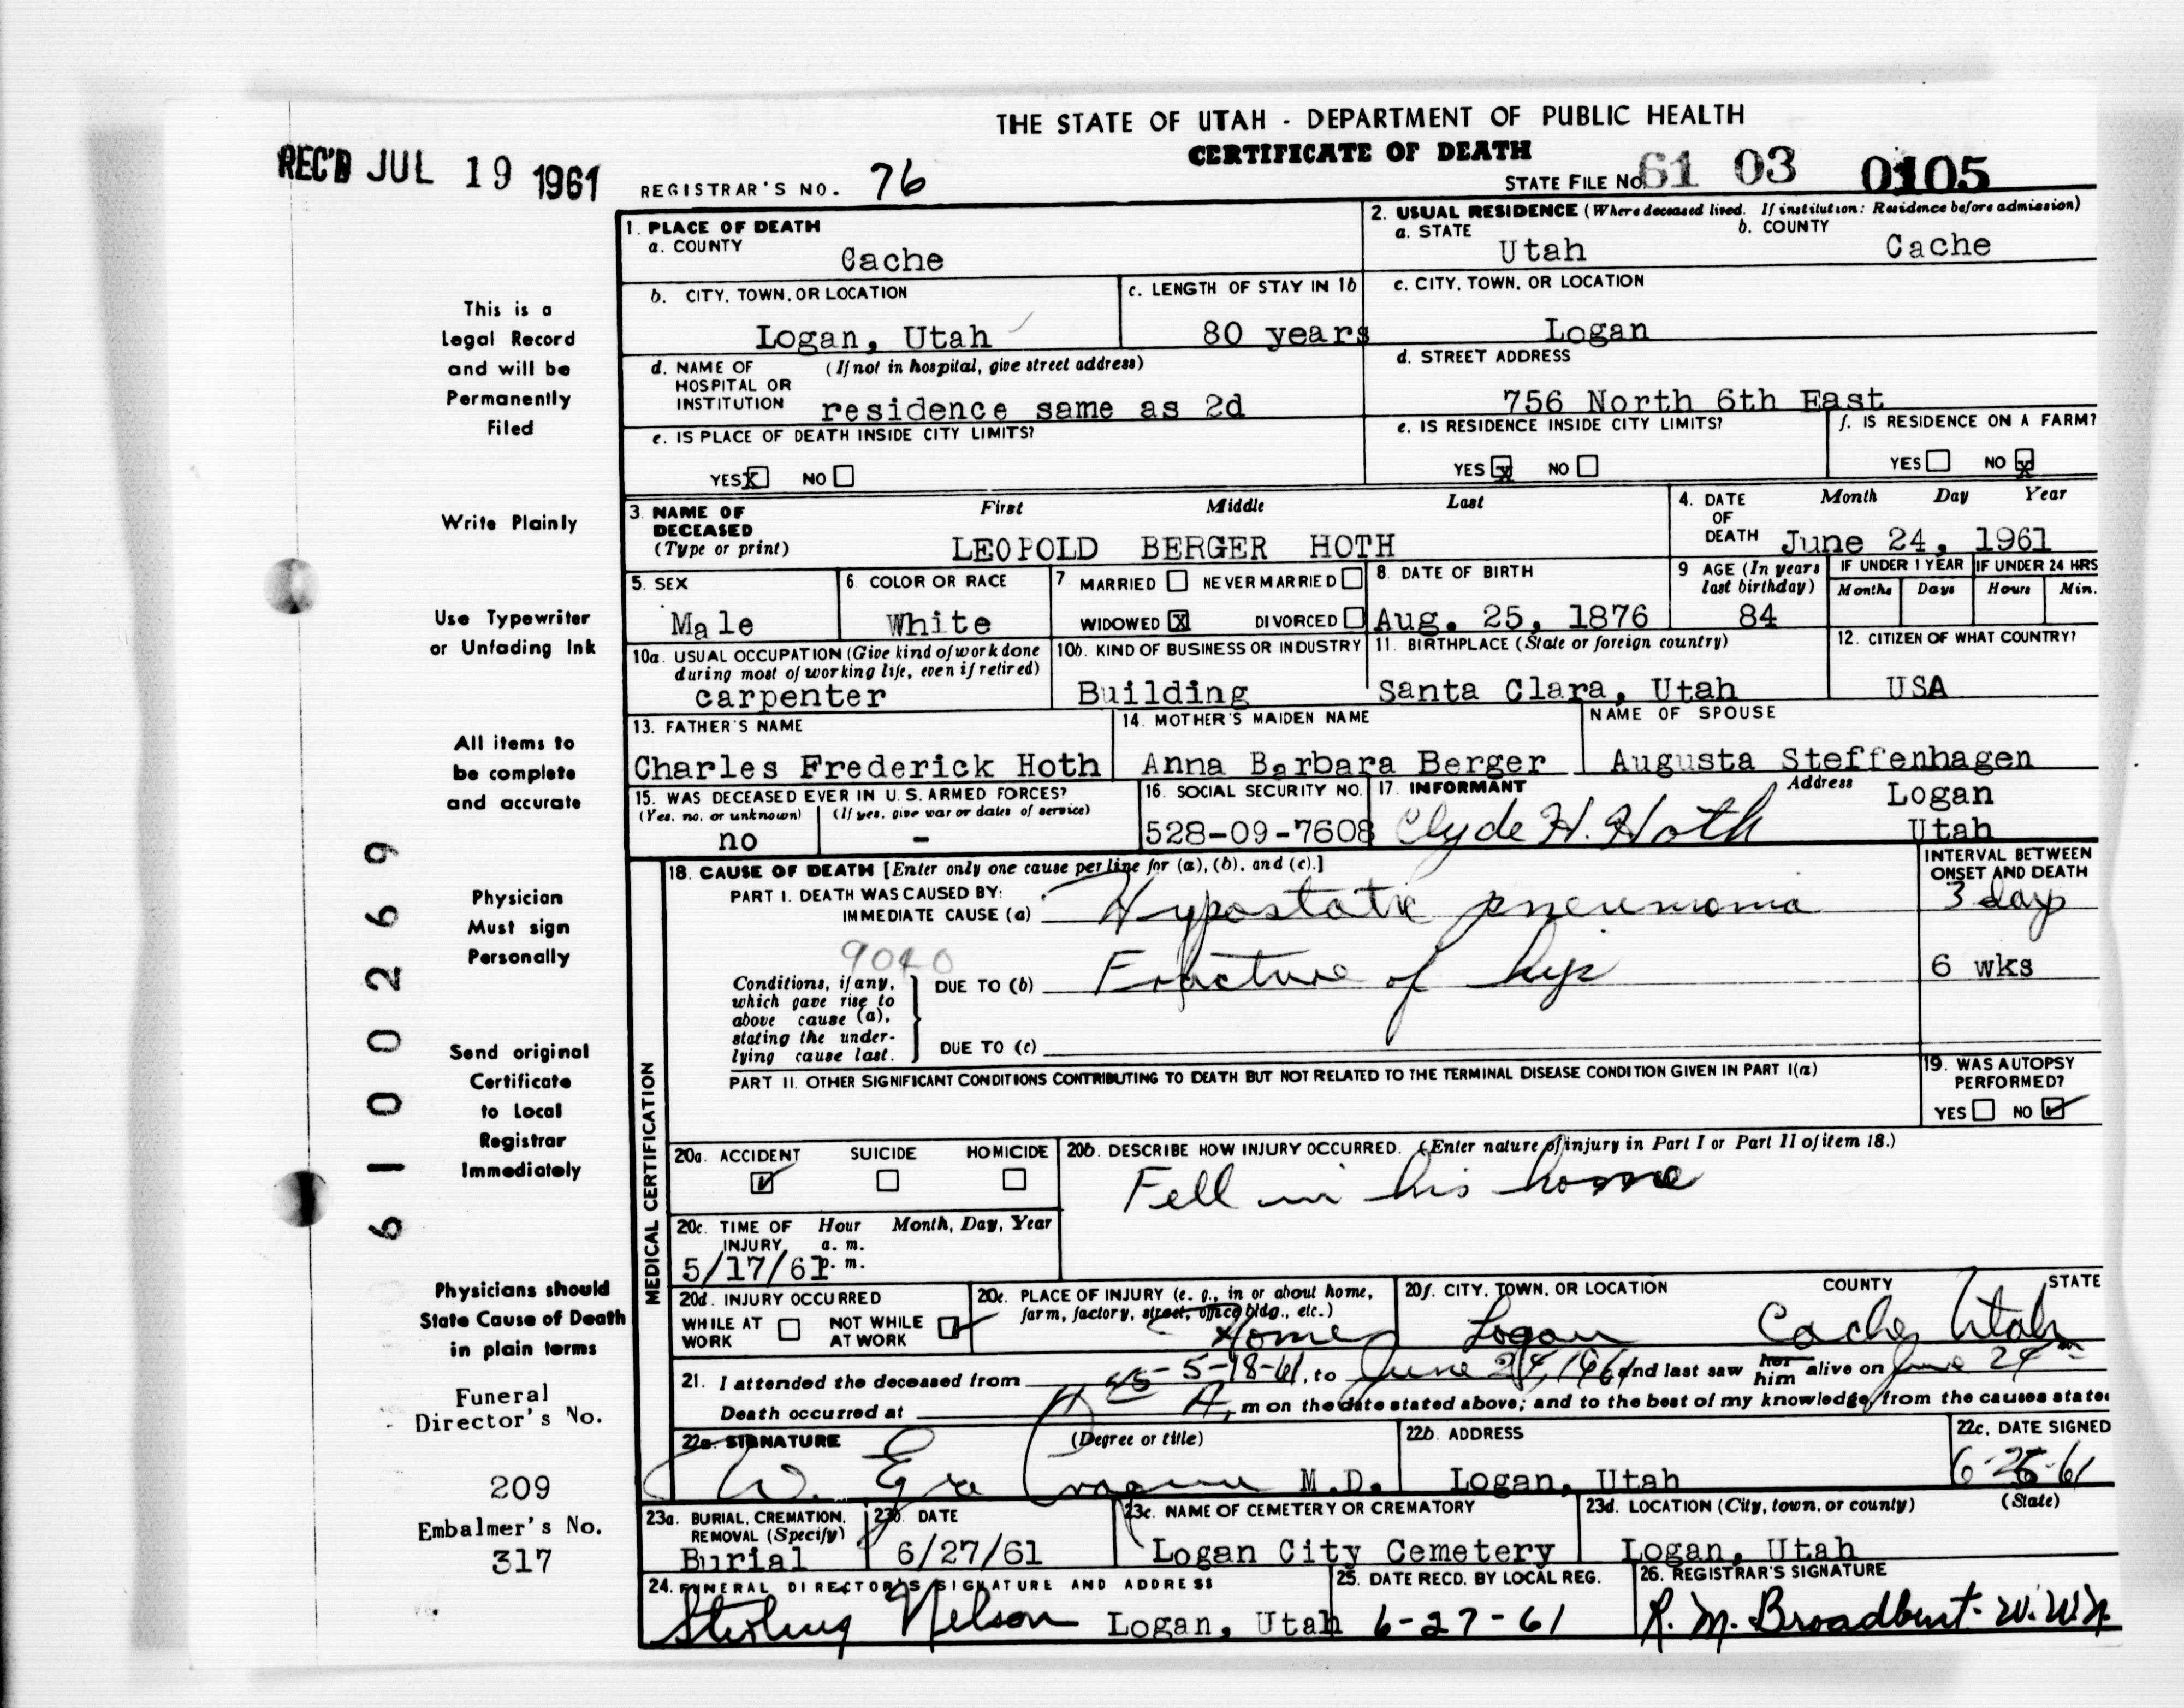 THE STATE OF UTAH - DEPARTMENT OF PUBLIC HEALTH
CERTIFICATE OF DEATH
REC'D JUL 19 1961
REGISTRAR'S NO. 76
STATE FILE NO. 61 03 0105
1. PLACE OF DEATH
a. COUNTY Cache
2. USUAL RESIDENCE (Where deceased lived. If institution: Residence before admission)
a. STATE Utah b. COUNTY Cache
b. CITY, TOWN, OR LOCATION Logan, Utah
c. LENGTH OF STAY IN 1b 80 years
c. CITY, TOWN, OR LOCATION Logan
d. NAME OF HOSPITAL OR INSTITUTION (If not in hospital, give street address) residence same as 2d
d. STREET ADDRESS 756 North 6th East
e. IS PLACE OF DEATH INSIDE CITY LIMITS? YES X NO
e. IS RESIDENCE INSIDE CITY LIMITS? YES X NO
f. IS RESIDENCE ON A FARM? YES NO X
3. NAME OF DECEASED (Type or print) First Middle Last
LEOPOLD BERGER HOTH
4. DATE OF DEATH Month Day Year
June 24, 1961
5. SEX Male
6. COLOR OR RACE White
7. MARRIED NEVER MARRIED
WIDOWED X DIVORCED
8. DATE OF BIRTH Aug. 25, 1876
9. AGE (In years last birthday) 84
IF UNDER 1 YEAR Months Days
IF UNDER 24 HRS Hours Min.
10a. USUAL OCCUPATION (Give kind of work done during most of working life, even if retired) carpenter
10b. KIND OF BUSINESS OR INDUSTRY Building
11. BIRTHPLACE (State or foreign country) Santa Clara, Utah
12. CITIZEN OF WHAT COUNTRY? USA
13. FATHER'S NAME Charles Frederick Hoth
14. MOTHER'S MAIDEN NAME Anna Barbara Berger
NAME OF SPOUSE Augusta Steffenhagen
15. WAS DECEASED EVER IN U.S. ARMED FORCES?
(Yes, no, or unknown) (If yes, give war or dates of service)
no -
16. SOCIAL SECURITY NO. 528-09-7608
17. INFORMANT Clyde H. Hoth
Address Logan Utah
18. CAUSE OF DEATH [Enter only one cause per line for (a), (b), and (c).]
INTERVAL BETWEEN ONSET AND DEATH
PART I. DEATH WAS CAUSED BY:
IMMEDIATE CAUSE (a) Hypostatic pneumonia 3 days
9040
Conditions, if any, which gave rise to above cause (a), stating the underlying cause last.
DUE TO (b) Fracture of hip 6 wks
DUE TO (c)
PART II. OTHER SIGNIFICANT CONDITIONS CONTRIBUTING TO DEATH BUT NOT RELATED TO THE TERMINAL DISEASE CONDITION GIVEN IN PART I(a)
19. WAS AUTOPSY PERFORMED?
YES NO ✓
MEDICAL CERTIFICATION
20a. ACCIDENT ✓ SUICIDE HOMICIDE
20b. DESCRIBE HOW INJURY OCCURRED. (Enter nature of injury in Part I or Part II of item 18.)
Fell in his home
20c. TIME OF INJURY Hour a. m. p. m. Month, Day, Year
5/17/61
20d. INJURY OCCURRED
WHILE AT WORK NOT WHILE AT WORK ✓
20e. PLACE OF INJURY (e. g., in or about home, farm, factory, street, office bldg., etc.) Home
20f. CITY, TOWN, OR LOCATION COUNTY STATE
Logan Cache Utah
21. I attended the deceased from 5-18-61, to June 24, 1961 and last saw her him alive on June 24
Death occurred at A. m on the date stated above; and to the best of my knowledge, from the causes stated
22a. SIGNATURE (Degree or title) W. Ezra M.D.
22b. ADDRESS Logan, Utah
22c. DATE SIGNED 6-26-61
23a. BURIAL, CREMATION, REMOVAL (Specify) Burial
23b. DATE 6/27/61
23c. NAME OF CEMETERY OR CREMATORY Logan City Cemetery
23d. LOCATION (City, town, or county) (State) Logan, Utah
24. FUNERAL DIRECTOR'S SIGNATURE AND ADDRESS
Sterling Nelson Logan, Utah
25. DATE RECD. BY LOCAL REG. 6-27-61
26. REGISTRAR'S SIGNATURE
R. M. Broadbent
This is a
Legal Record
and will be
Permanently
Filed
Write Plainly
Use Typewriter
or Unfading Ink
All items to
be complete
and accurate
Physician
Must sign
Personally
Send original
Certificate
to Local
Registrar
Immediately
Physicians should
State Cause of Death
in plain terms
Funeral
Director's No.
209
Embalmer's No.
317
6100269